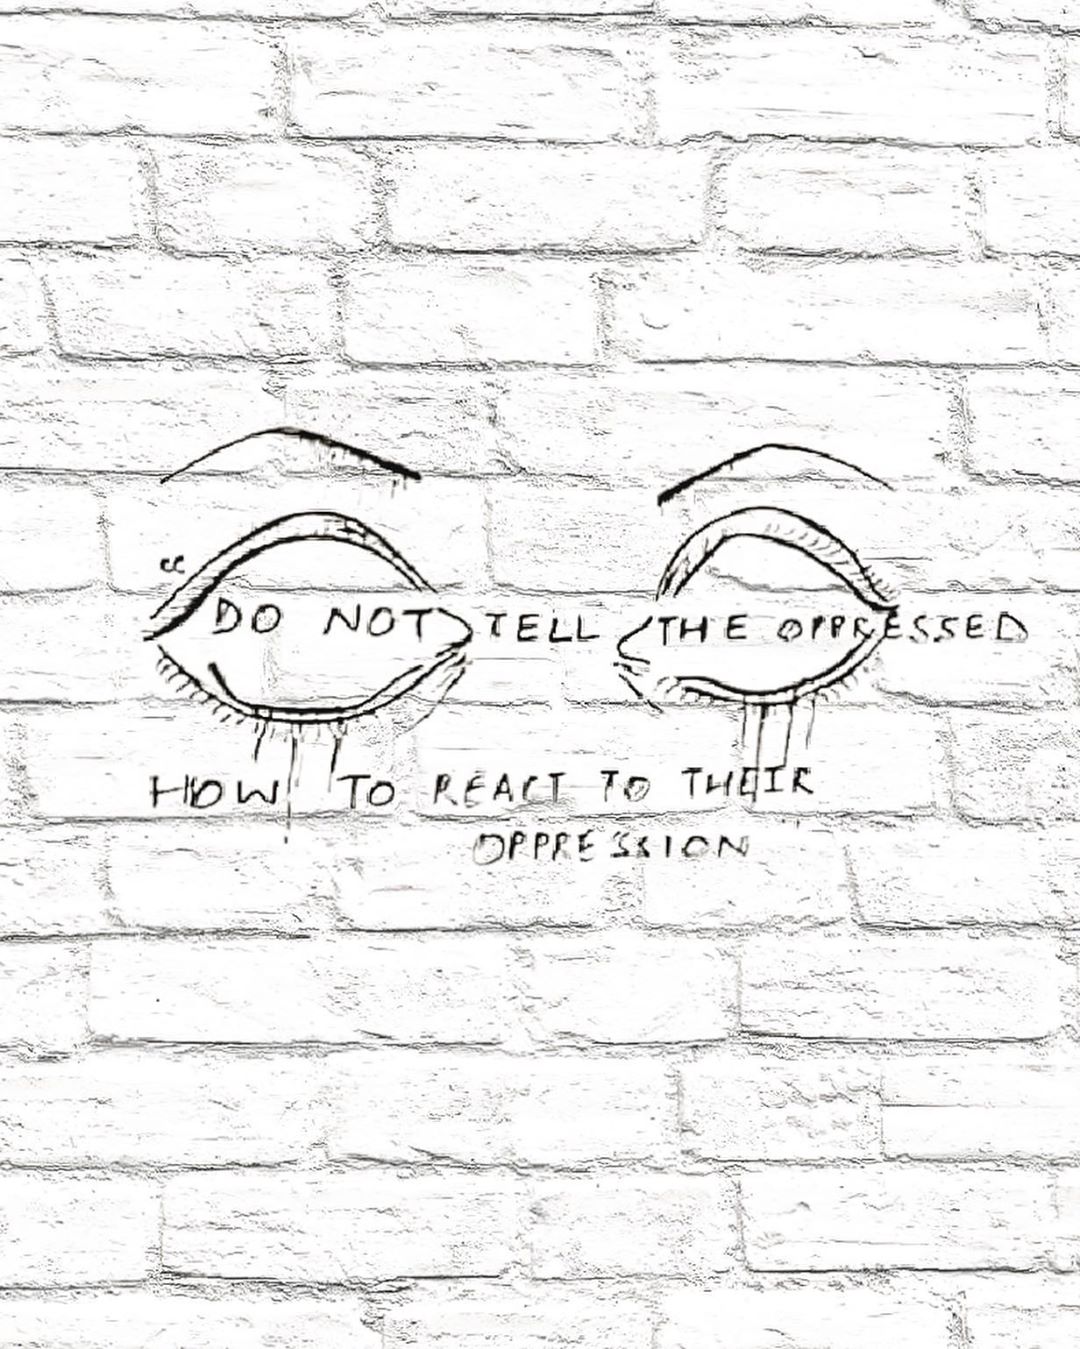 “DO NOT TELL THE OPPRESSED
HOW TO REACT TO THEIR
OPPRESSION